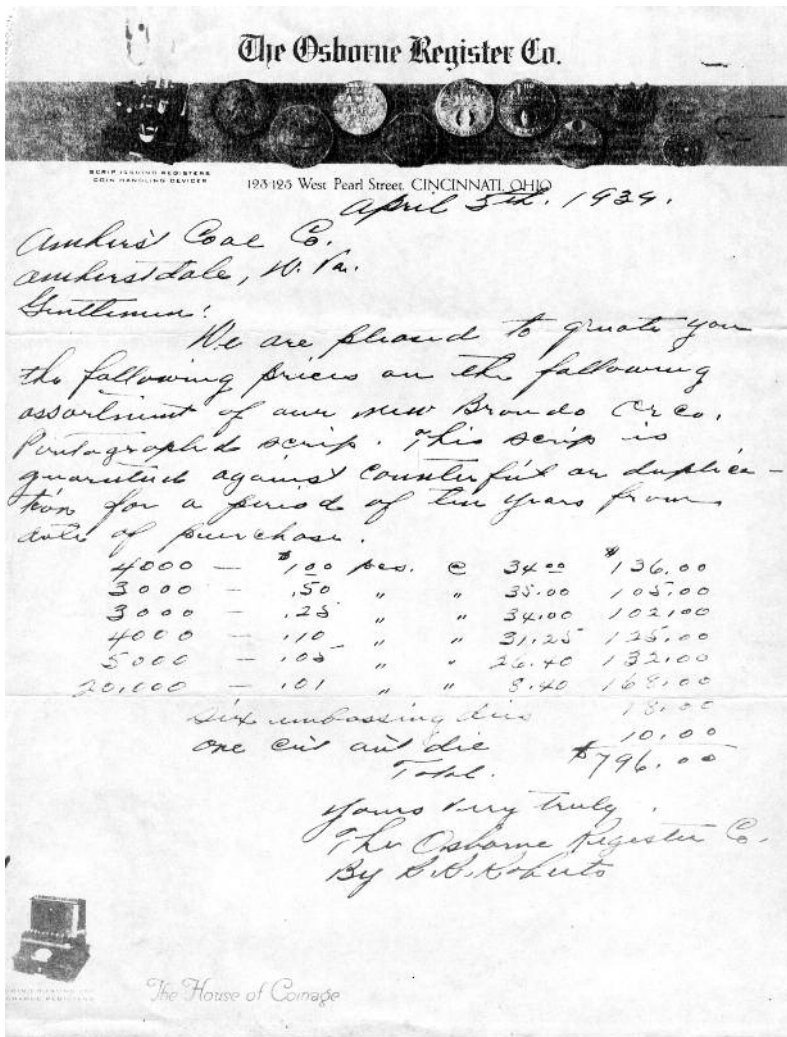 The Osborne Register Co.
SCRIP ISSUING REGISTERS
COIN HANDLING DEVICES
123-125 West Pearl Street, CINCINNATI, OHIO
April 5th. 1939.
Amherst Coal Co.
Amherstdale, W. Va.
Gentlemen:
We are pleased to quote you
the following prices on the following
assortment of our new Brondo Orco.
Pantagraphed scrip. This scrip is
guaranteed against counterfeit or duplica-
tion for a period of ten years from
date of purchase.
4000 — $1.00 pcs. @ 34.00 $136.00
3000 — .50 " " 35.00 105.00
3000 — .25 " " 34.00 102.00
4000 — .10 " " 31.25 125.00
5000 — .05 " " 26.40 132.00
20,000 — .01 " " 8.40 168.00
Six embossing dies 18.00
one cut out die 10.00
Total. $796.00
Yours very truly.
The Osborne Register Co.
By Roberts
The House of Coinage